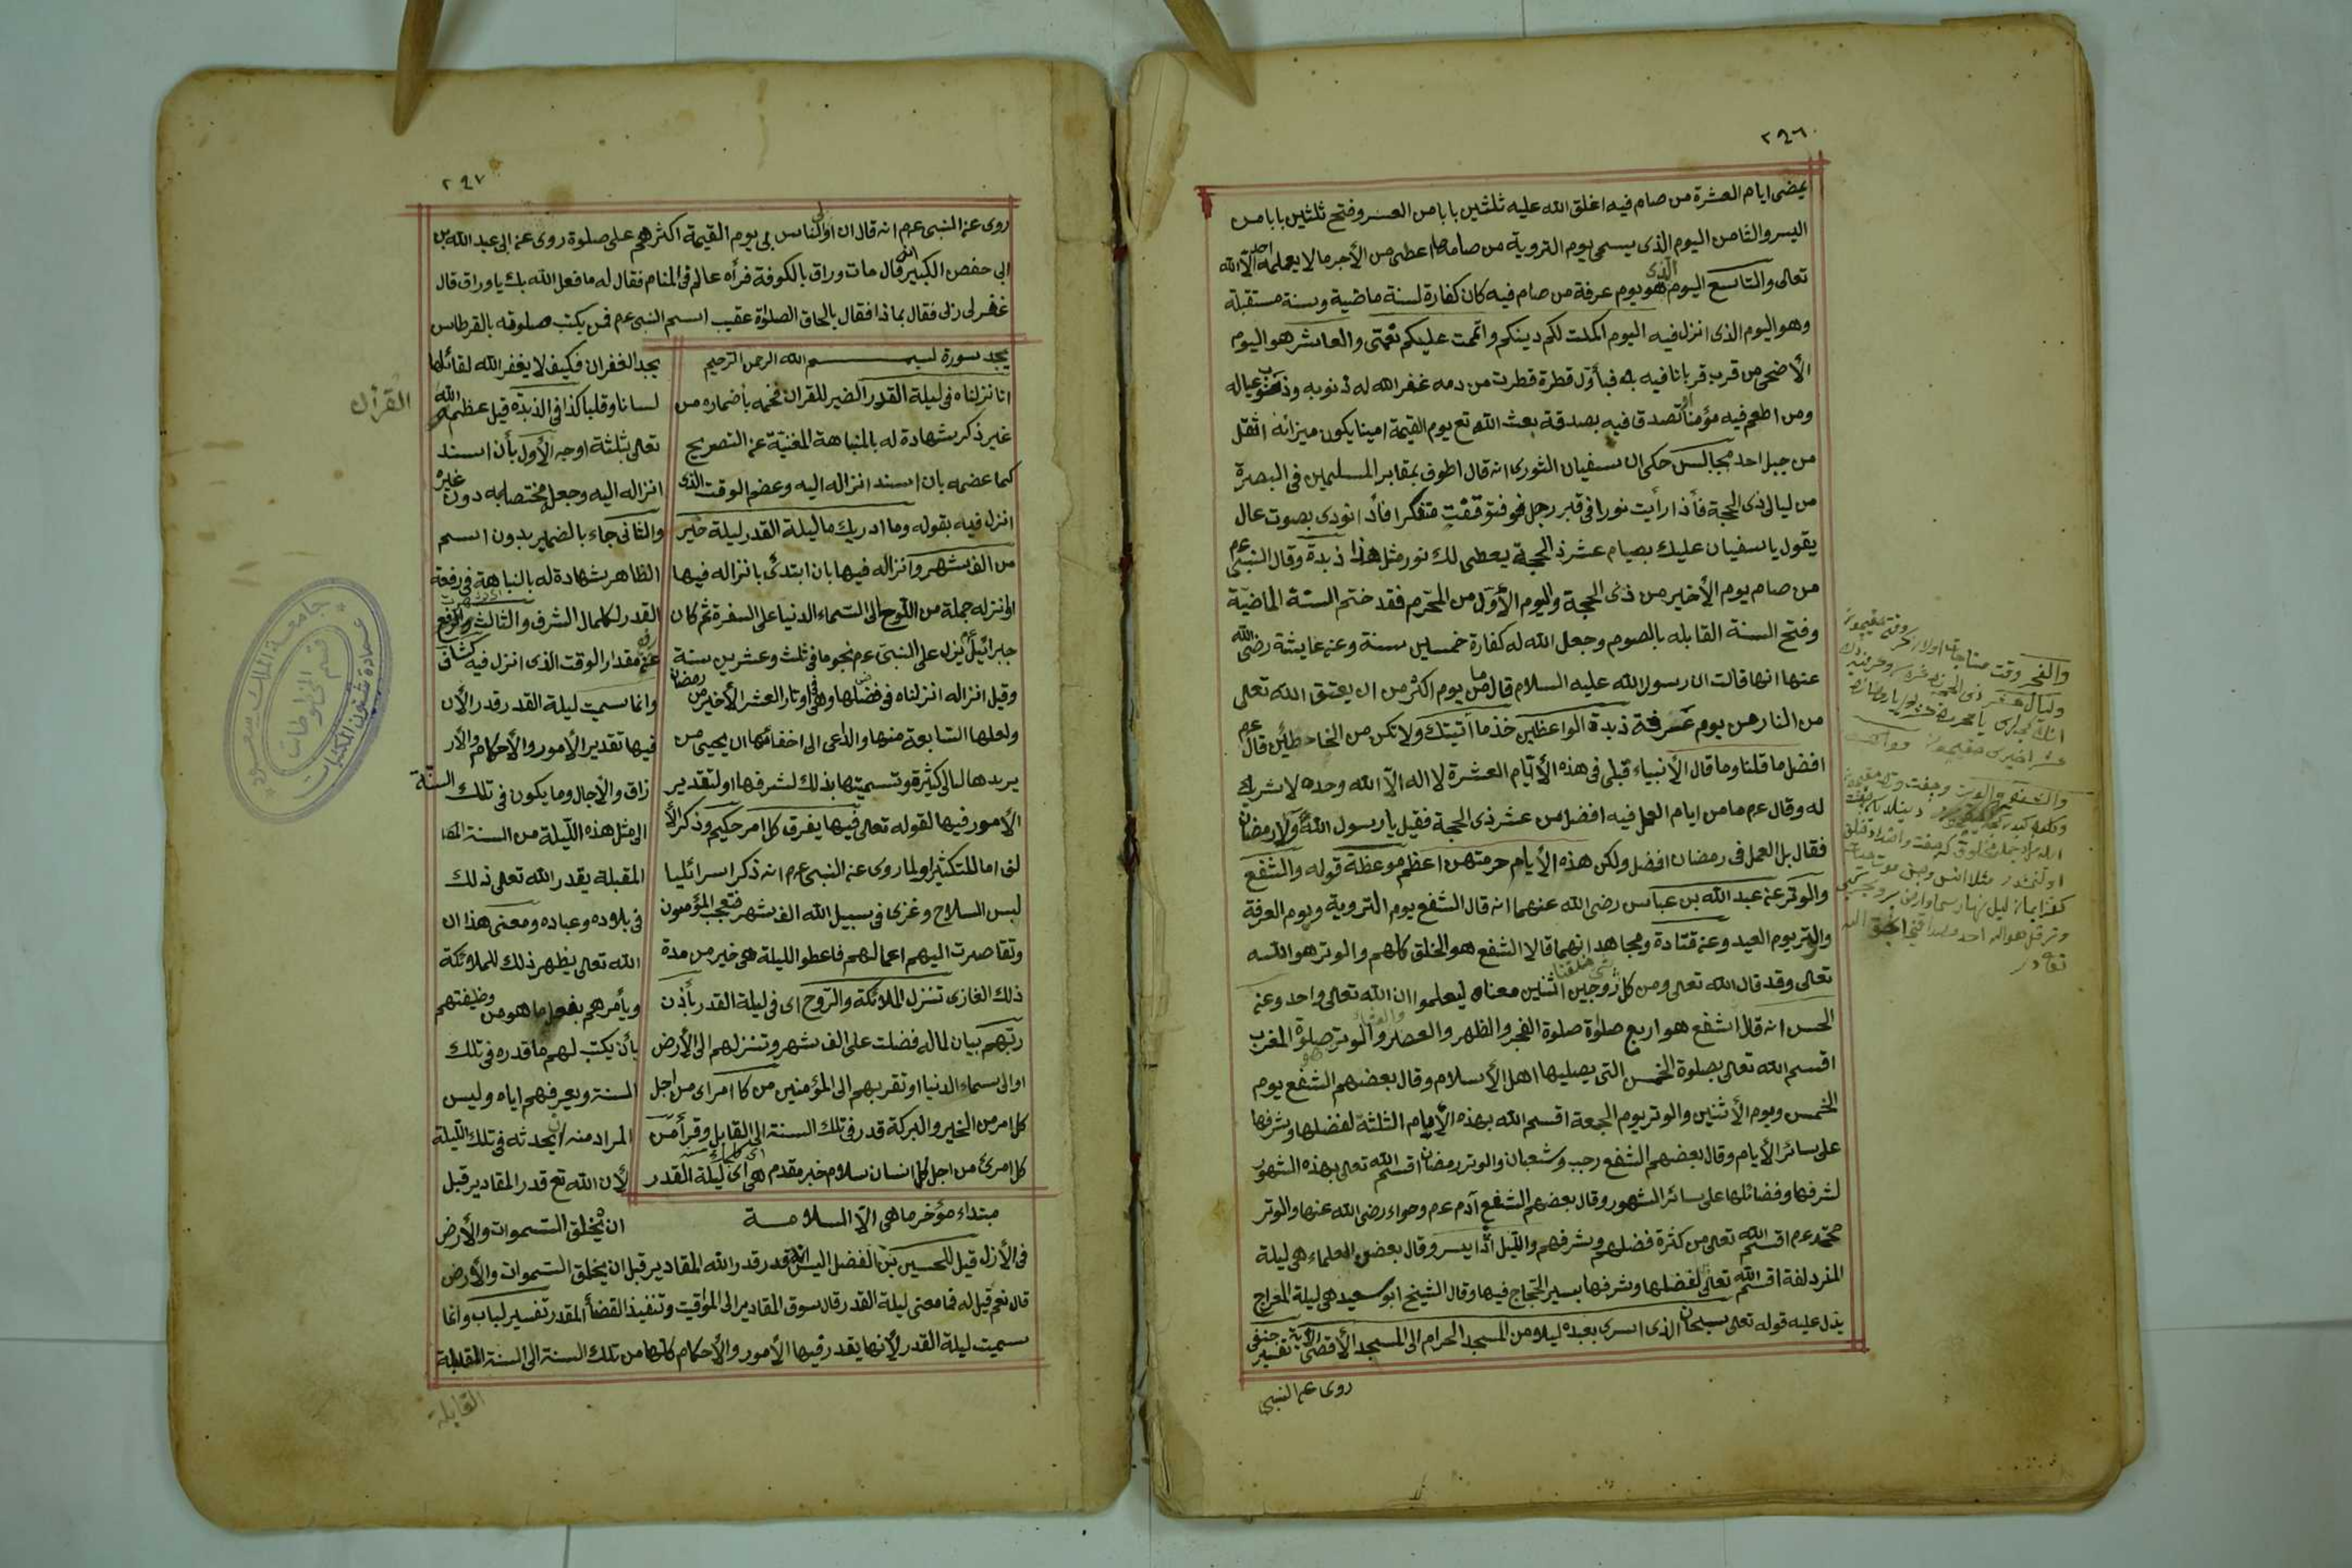 ٢٩٦
يمضى ايام العشرة من صام فيه اغلق الله عليه ثلثين بابا من العسر وفتح ثلثين بابا من
اليسر والثامن اليوم الذى يسمى يوم التروية من صامه اعطى من الأجر مالا يعلمه احد الا الله
تعالى والتاسع اليوم الذى هو يوم عرفة من صام فيه كان كفارة لسنة ماضية وسنة مستقبلة
وهو اليوم الذى انزل فيه اليوم اكملت لكم دينكم واتممت عليكم نعمتى والعاشر هو اليوم
الأضحى من قرب قربانا فيه فبأول قطرة قطرت من دمه غفر الله له ذنوبه وذنوب عياله
ومن اطعم فيه مؤمنا او تصدق فيه بصدقة بعث الله تع يوم القيمة امينا يكون ميزانه اثقل
من جبل احد مجالس حكى ان سفيان الثورى انه قال اطوف بمقابر المسلمين فى البصرة
من ليالى ذى الحجة فأذا رأيت نورا فى قبر رجل فتوقفت متفكرا فأذا نودى بصوت عال
يقول يا سفيان عليك بصيام عشر ذ الحجة يعطى لك نور مثل هذا زبدة وقال النبى عم
من صام يوم الأخير من ذى الحجة واليوم الأول من المحرم فقد ختم السنة الماضية
وفتح السنة القابله بالصوم وجعل الله له كفارة خمسين سنة وعن عايشة رضى الله
عنها انها قالت ان رسول الله عليه السلام قال ما من يوم اكثر من ان يعتق الله تعالى
من النار من يوم عرفة زبدة الواعظين خذ ما اتيتك ولا تكن من الخاطئين قال عم
افضل ما قلنا وما قال الأنبياء قبلى فى هذه الأيام العشرة لا اله الا الله وحده لا شريك
له وقال عم ما من ايام العمل فيه افضل من عشر ذى الحجة فقيل يا رسول الله ولا رمضان
فقال بل العمل فى رمضان افضل ولكن هذه الأيام حرمتهن اعظم موعظة قوله والشفع
والوتر عن عبد الله بن عباس رضى الله عنهما انه قال الشفع يوم التروية ويوم العرفة
والوتر يوم العيد وعن قتادة ومجاهد انهما قالا الشفع هو الخلق كلهم والوتر هو الله
تعالى وقد قال الله تعالى ومن كل شئ خلقنا زوجين اثنين معناه ليعلموا ان الله تعالى واحد وعن
الحسن انه قال الشفع هو اربع صلوة صلوة الفجر والظهر والعصر والعشاء والوتر صلوة المغرب
اقسم الله تعالى بصلوة الخمس التى يصليها اهل الأسلام وقال بعضهم الشفع يوم
الخمس ويوم الأثنين والوتر يوم الجمعة اقسم الله بهذه الأيام الثلثة لفضلها وشرفها
على سائر الأيام وقال بعضهم الشفع رجب وشعبان والوتر رمضان اقسم الله تعالى بهذه الشهور
لشرفها وفضائلها على سائر الشهور وقال بعضهم الشفع آدم عم وحواء رضى الله عنها والوتر
محمد عم اقسم الله تعالى من كثرة فضلهم وشرفهم والليل اذا يسر وقال بعض العلماء هى ليلة
المزدلفة اقسم الله تعالى لفضلها وشرفها بسير الحجاج فيها وقال الشيخ ابو سعيد هى ليلة المعراج
يدل عليه قوله تعالى سبحان الذى اسرى بعبده ليلا من المسجد الحرام الى المسجد الأقصى الاية تفسير حنفى
روى عن النبى
٢٩٧
روى عن النبى عم انه قال ان اولى الناس بى يوم القيمة اكثرهم على صلوة روى عن ابى عبد الله بن
ابى حفص الكبير انه قال مات وراق بالكوفة فرأه عالم فى المنام فقال له ما فعل الله بك يا وراق قال
غفر لى ربى فقال بماذا فقال بالحاق الصلوة عقيب اسم النبى عم فمن يكتب صلوته بالقرطاس
يجد سورة بسم الله الرحمن الرحيم
انا نزلناه فى ليلة القدر الضمير للقران فخمه بأضماره من
غير ذكر شهادة له بالنباهة المغنية عن التصريح
كما عضمه بان اسند انزاله اليه وعضم الوقت الذى
انزل فيه بقوله وما ادريك ما ليلة القدر ليلة خير
من الف شهر وانزاله فيها بان ابتدئ بانزاله فيها
او انزله جملة من اللوح الى السماء الدنيا على السفرة ثم كان
جبرائيل ينزل على النبى عم نجوما فى ثلث وعشرين سنة
وقيل انزاله انزلناه فى فضلها وهى فى اوتار العشر الأخير من رمضان
ولعلها السابعة منها والداعى الى اخفائها ان يحيى من
يريدها ليالى كثيرة وتسميتها بذلك لشرفها او لتقدير
الأمور فيها لقوله تعالى فيها يفرق كل امر حكيم وذكر الأ
لف اما للتكثير او لما روى عن النبى عم انه ذكر اسرائليا
لبس السلاح وغزى فى سبيل الله الف شهر فتعجب المؤمنون
وتقاصرت اليهم اعمالهم فاعطوا الليلة هى خير من مدة
ذلك الغازى تنزل الملائكة والروح اى فى ليلة القدر بأذن
ربهم بيان لما له فضلت على الف شهر وتنزلهم الى الأرض
او الى سماء الدنيا او تقربهم الى المؤمنين من كل امر اى من اجل
كل امر من الخير والبركة قدر فى تلك السنة الى القابل وقرأ من
كل امرئ من اجل كل انسان سلام خبر مقدم هى اى ليلة القدر
مبتداء مؤخر ما هى الا السلامة
يجد الغفران فكيف لا يغفر الله لقائلها
لسانا وقلبا كذا فى الزبدة قيل عظم الله
القرأن
تعالى بثلثة اوجه الأول بأن اسند
انزاله اليه وجعل مختصا به دون غيره
والثانى جاء بالضمير بدون اسم
الظاهر شهادة له بالنباهة فى رفعة
القدر لكمال الشرف والثالث
مقدار الوقت الذى انزل فيه كشاف
وانما سميت ليلة القدر قدر الأن
فيها تقدير الأمور والأحكام والأر
زاق والأجال وما يكون فى تلك السنة
الى مثل هذه الليلة من السنة
المقبلة يقدر الله تعالى ذلك
فى بلاده وعباده ومعنى هذا ان
الله تعالى يظهر ذلك للملائكة
ويأمرهم بفعل ما هو من وظيفتهم
بأن يكتب لهم ما قدره فى تلك
السنة ويعرفهم اياه وليس
المراد منه ان يحدثه فى تلك الليلة
لأن الله تع قدر المقادير قبل
ان يخلق السموات والأرض
فى الأزل قيل للحسين بن الفضل اليس قد قدر الله المقادير قبل ان يخلق السموات والأرض
قال نعم قيل له فما معنى ليلة القدر قال سوق المقادير الى المواقيت وتنفيذ القضأ المقدر تفسير لباب وانما
سميت ليلة القدر لأنها يقدر فيها الأمور والأحكام كلها من تلك السنة الى السنة المقبلة
القابلة
جامعة الملك سعود
عمادة شئون المكتبات
قسم المخطوطات